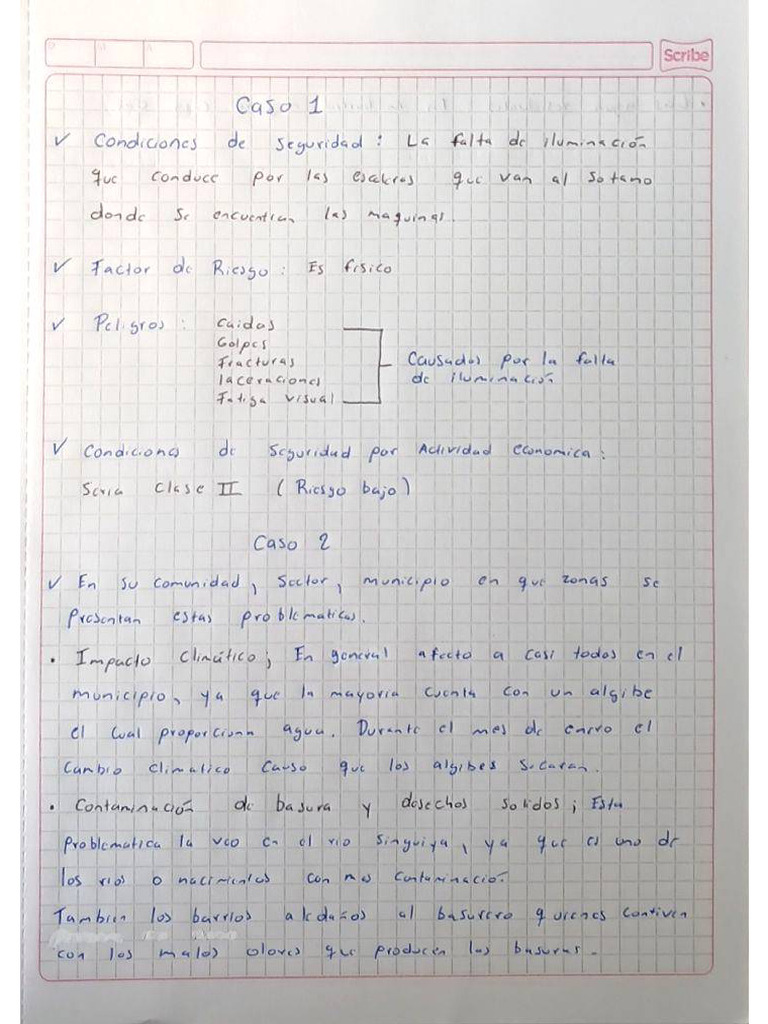 Scribe
Caso 1
✓ Condiciones de seguridad : La falta de iluminación
que conduce por las escaleras que van al sotano
donde se encuentran las maquinas.
✓ Factor de Riesgo : Es fisico
✓ Peligros : Caidas
Golpes
Fracturas
laceraciones
Fatiga visual
Causados por la falla
de iluminación
✓ Condiciones de Seguridad por Actividad economica :
Seria Clase II (Riesgo bajo)
Caso 2
✓ En su comunidad, Sector, municipio en que zonas se
presentan estas problematicas.
• Impacto Climático; En general afecto a casi todos en el
municipio, ya que la mayoria cuenta con un algibe
el cual proporciona agua. Durante el mes de enero el
Cambio climatico causo que los algibes secaran.
• Contaminación de basura y desechos solidos; Esta
problematica la veo en el rio Singuiya, ya que es uno de
los rios o nacimientos con mas contaminación
Tambien los barrios aledaños al basurero quienes conviven
con los malos olores que producen las basuras.